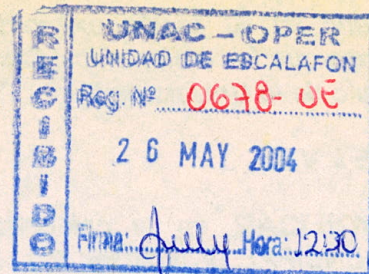 RECIBIDO
UNAC - OPER
UNIDAD DE ESCALAFON
Reg. Nº 0678-UE
26 MAY 2004
Firma: Hora: 12:30